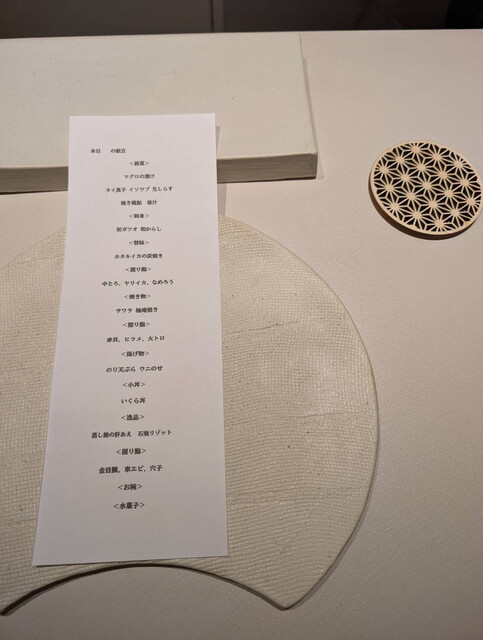 本日　の献立
＜前菜＞
マグロの漬け
タイ真子 イソツブ 生しらす
焼き稚鮎 蛤汁
＜刺身＞
初ガツオ 和からし
＜替録＞
ホタルイカの炭焼き
＜握り鮨＞
中とろ、ヤリイカ、なめろう
＜焼き物＞
サワラ 柚庵焼き
＜握り鮨＞
赤貝、ヒラメ、大トロ
＜揚げ物＞
のり天ぷら ウニのせ
＜小丼＞
いくら丼
＜逸品＞
蒸し鮑の肝あえ　石焼リゾット
＜握り鮨＞
金目鯛、車エビ、穴子
＜お椀＞
＜水菓子＞